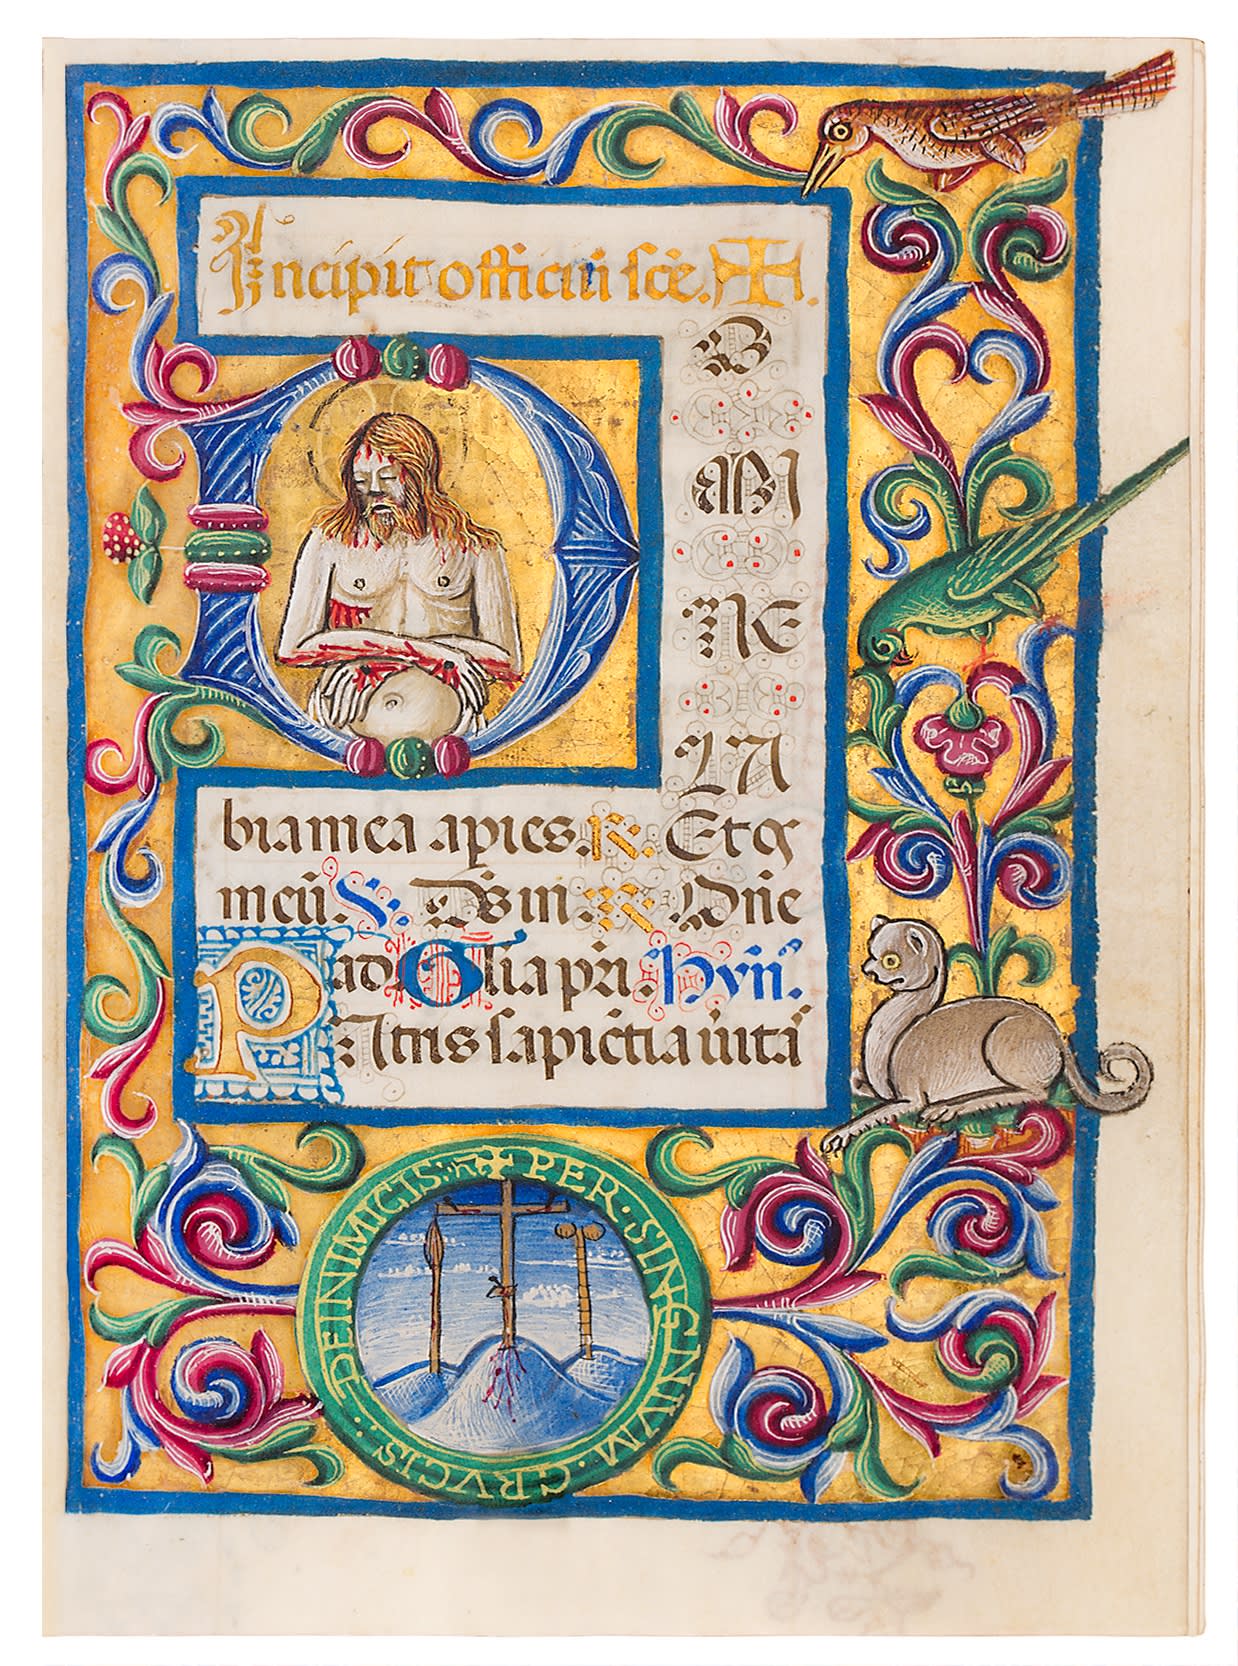 Incipit officiū sc̄e. ✠.
D
O
MI
NE
LA
bia mea apies. R. Et os
meū. V. Ds in. R. Dn̄e
ad Glia pri. Hyn̄.
PAtris sapiētia ūitā
✠ PER · SINGNIVM · CRVCIS · DEINIMICIS :